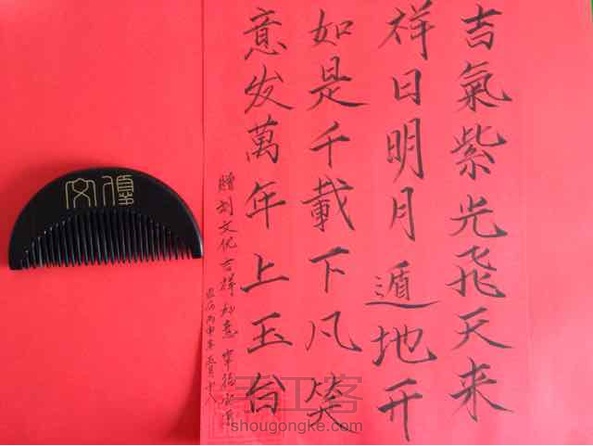 吉氣紫光飛天来
祥日明月遁地开
如是千載下凡笑
意发萬年上玉台
贈刘文优吉祥如意
丙申年正月十八
文優
手工客
shougongke.com